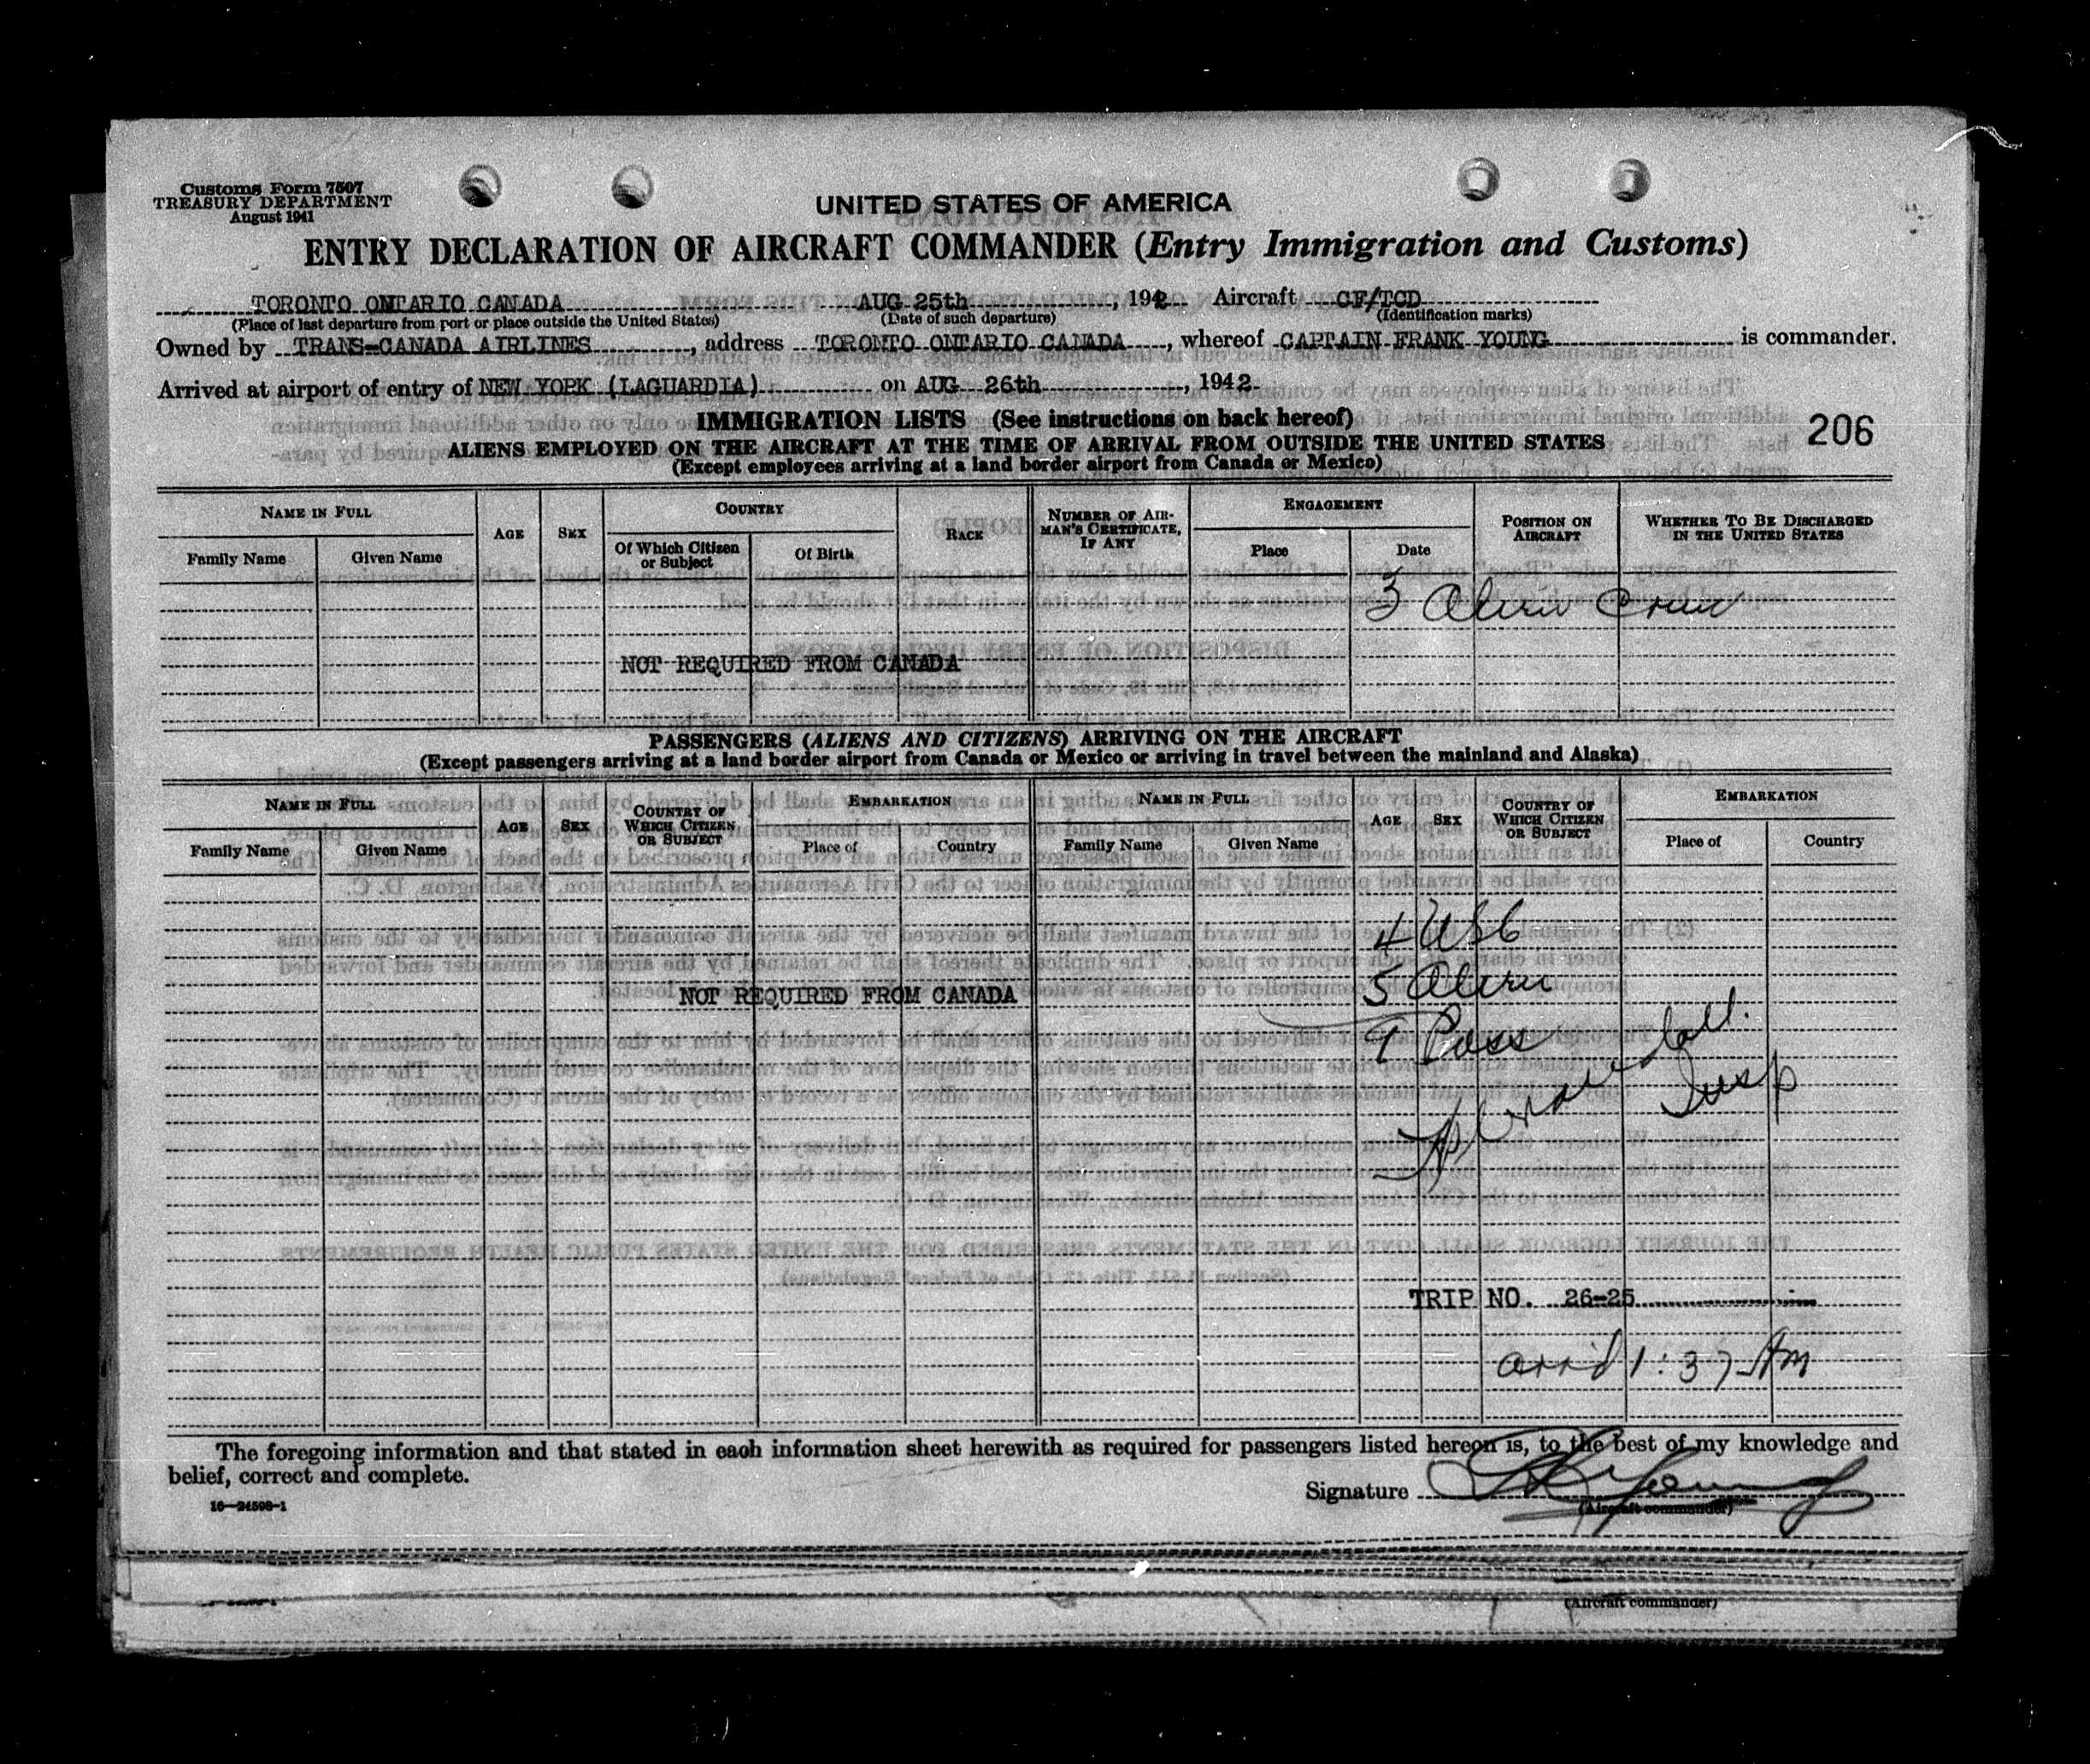 Customs Form 7507
TREASURY DEPARTMENT
August 1941
UNITED STATES OF AMERICA
ENTRY DECLARATION OF AIRCRAFT COMMANDER (Entry Immigration and Customs)
TORONTO ONTARIO CANADA AUG 25th, 1942 Aircraft CF/TCD
(Place of last departure from port or place outside the United States) (Date of such departure) (Identification marks)
Owned by TRANS-CANADA AIRLINES, address TORONTO ONTARIO CANADA, whereof CAPTAIN FRANK YOUNG is commander.
Arrived at airport of entry of NEW YORK (LAGUARDIA) on AUG 26th, 1942
IMMIGRATION LISTS (See instructions on back hereof)
206
ALIENS EMPLOYED ON THE AIRCRAFT AT THE TIME OF ARRIVAL FROM OUTSIDE THE UNITED STATES
(Except employees arriving at a land border airport from Canada or Mexico)
NAME IN FULL AGE SEX COUNTRY RACE NUMBER OF AIRMAN'S CERTIFICATE, IF ANY ENGAGEMENT POSITION ON AIRCRAFT WHETHER TO BE DISCHARGED IN THE UNITED STATES
Family Name Given Name Of Which Citizen or Subject Of Birth Place Date
3 Alien Crew
NOT REQUIRED FROM CANADA
PASSENGERS (ALIENS AND CITIZENS) ARRIVING ON THE AIRCRAFT
(Except passengers arriving at a land border airport from Canada or Mexico or arriving in travel between the mainland and Alaska)
NAME IN FULL AGE SEX COUNTRY OF WHICH CITIZEN OR SUBJECT EMBARKATION NAME IN FULL AGE SEX COUNTRY OF WHICH CITIZEN OR SUBJECT EMBARKATION
Family Name Given Name Place of Country Family Name Given Name Place of Country
4 USC
5 Alien
NOT REQUIRED FROM CANADA
9 Pass
Insp
TRIP NO. 26-25
arr'd 1:37 AM
The foregoing information and that stated in each information sheet herewith as required for passengers listed hereon is, to the best of my knowledge and
belief, correct and complete.
Signature
(Aircraft commander)
16-24598-1
(Aircraft commander)